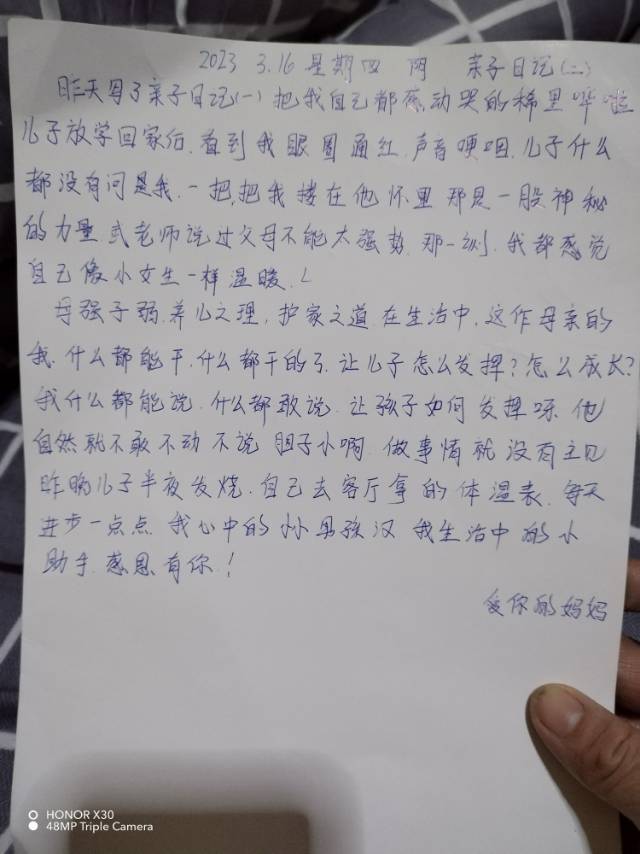 2023 3.16 星期四 阴 亲子日记(二)
昨天写了亲子日记(一)把我自己都感动哭的稀里哗啦
儿子放学回家后,看到我眼圈通红,声音哽咽,儿子什么
都没有问是我,一把,把我搂在他怀里 那是一股神秘
的力量 武老师说过父母不能太强势,那一刻,我都感觉
自己像小女生一样温暖.
母强子弱,养儿之理,护家之道 在生活中,这作母亲的
我,什么都能干,什么都干的了,让儿子怎么发挥?怎么成长?
我什么都能说,什么都敢说,让孩子如何发挥呀 他
自然就不敢不动不说 胆子小啊 做事情就没有主见
昨晚儿子半夜发烧,自己去客厅拿的体温表,每天
进步一点点 我心中的小男孩汉 我生活中的小
助手,感恩有你!
爱你的妈妈
HONOR X30
48MP Triple Camera